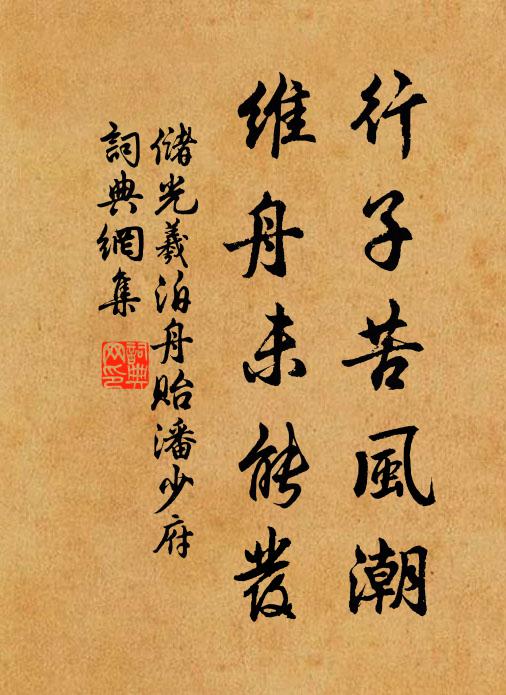 行子苦風潮
維舟未能發
儲光羲泊舟貽潘少府
詞典網集
詞典網印